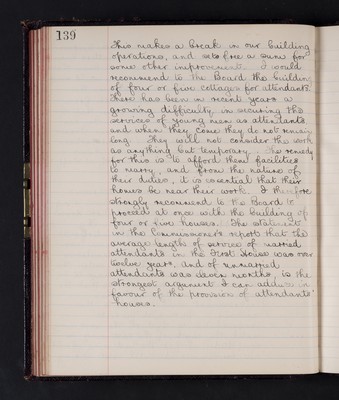 139
This makes a break in our building
operations, and sets free a sum for
some other improvement. I would
recommend to the Board the building
of four or five cottages for attendants.
There has been in recent years a
growing difficulty in securing the
services of young men as attendants
and when they come they do not remain
long. They will not consider the work
as anything but temporary. The remedy
for this is to afford them facilities
to marry, and from the nature of
their duties, it is essential that their
homes be near their work. I therefore
strongly recommend to the Board to
proceed at once with the building of
four or five houses. The statement
in the Commissioner's report that the
average length of service of married
attendants in the First House was over
twelve years, and of unmarried
attendants was seven months, is the
strongest argument I can adduce in
favour of the provision of attendants'
houses.